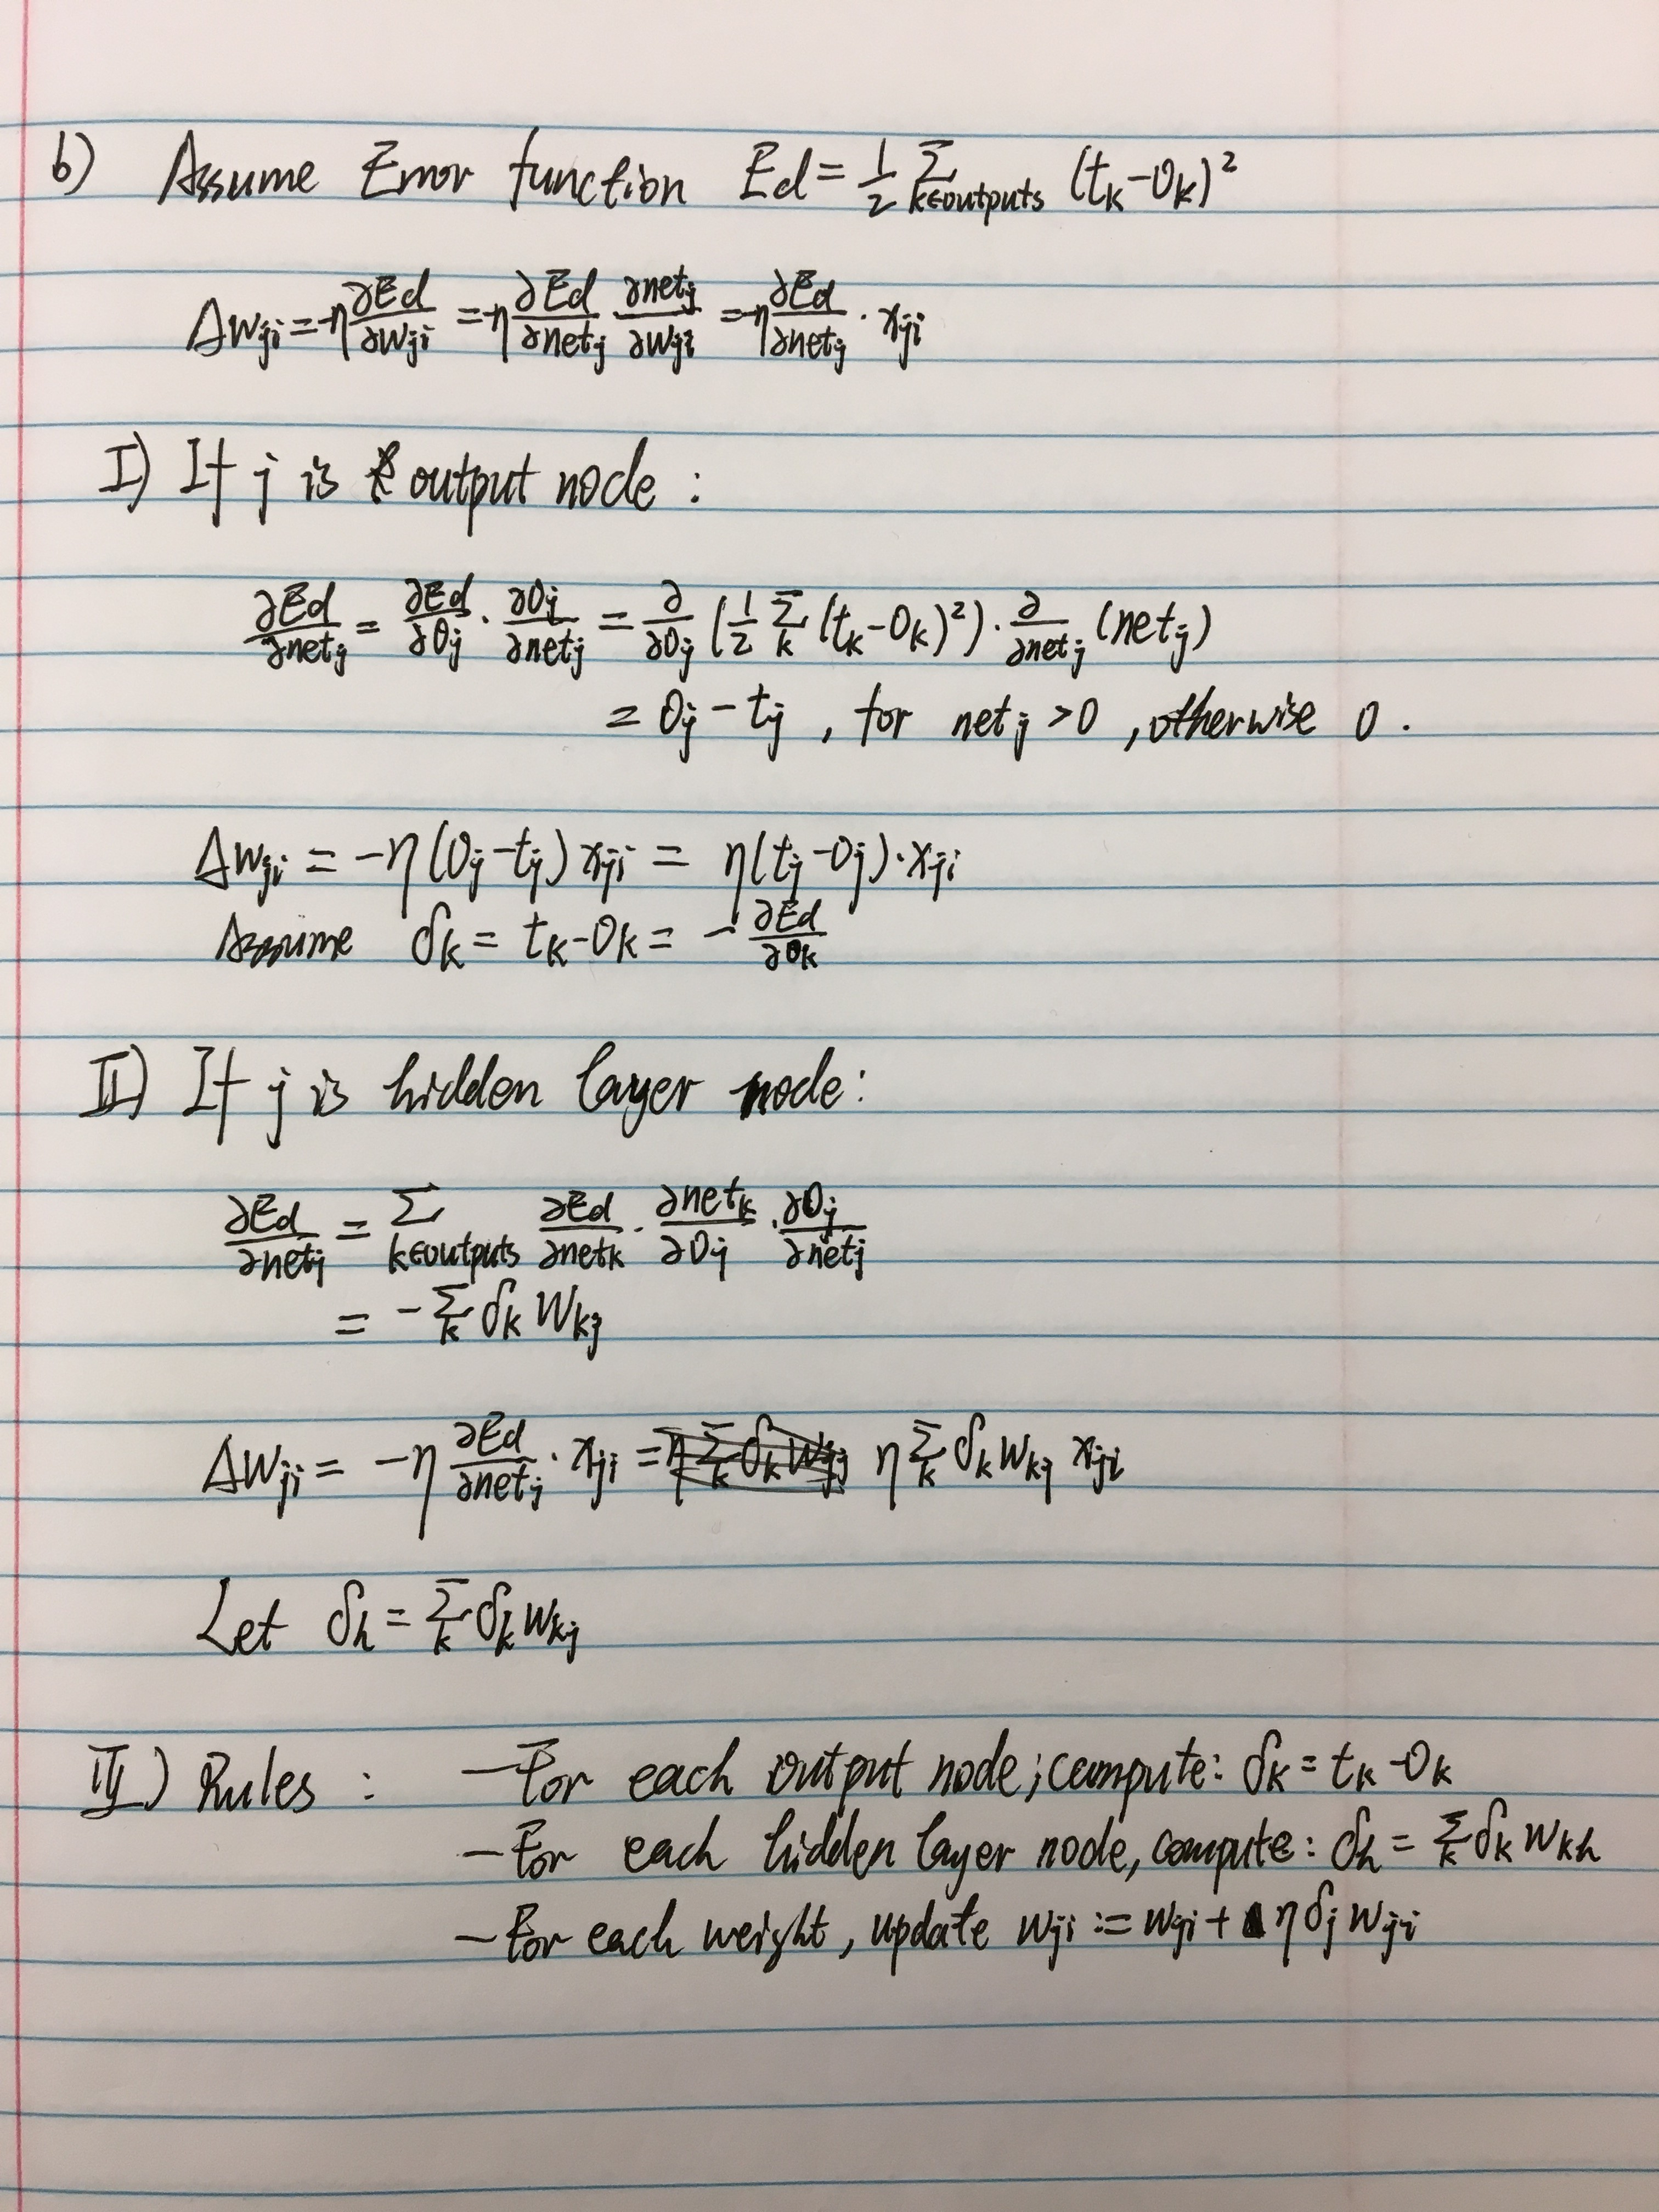 b) Assume Error function Ed = 1/2 Σ_{k∈outputs} (t_k - O_k)²
Δw_ji = -η ∂Ed/∂w_ji = -η ∂Ed/∂net_j ∂net_j/∂w_ji = -η ∂Ed/∂net_j · x_ji
I) If j is output node :
∂Ed/∂net_j = ∂Ed/∂O_j · ∂O_j/∂net_j = ∂/∂O_j (1/2 Σ_k (t_k - O_k)²) · ∂/∂net_j (net_j)
= O_j - t_j , for net_j > 0 , otherwise 0 .
Δw_ji = -η (O_j - t_j) x_ji = η (t_j - O_j) · x_ji
Assume δ_k = t_k - O_k = - ∂Ed/∂O_k
II) If j is hidden layer node :
∂Ed/∂net_j = Σ_{k∈outputs} ∂Ed/∂net_k · ∂net_k/∂O_j · ∂O_j/∂net_j
= - Σ_k δ_k W_kj
Δw_ji = -η ∂Ed/∂net_j · x_ji = η Σ_k δ_k w_kj x_ji
Let δ_h = Σ_k δ_k w_kj
III) Rules : - For each output node ; compute : δ_k = t_k - O_k
- For each hidden layer node, compute : δ_h = Σ_k δ_k w_kh
- For each weight , update w_ji := w_ji + η δ_j w_ji